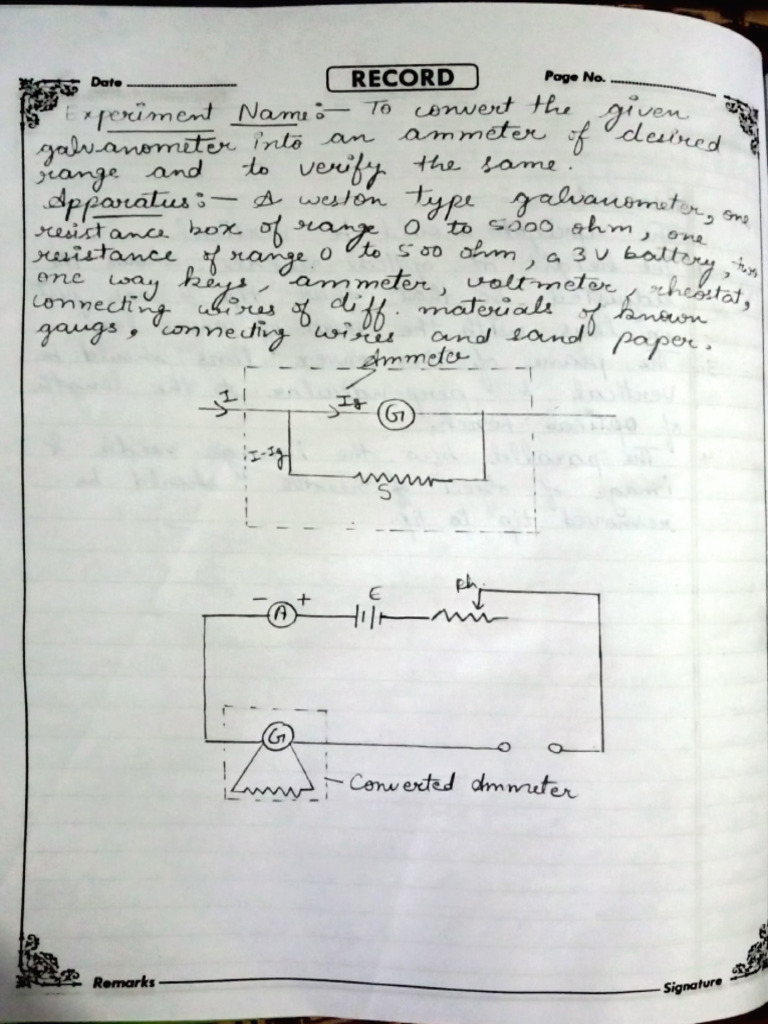 Date
RECORD
Page No.
Experiment Name:- To convert the given
galvanometer into an ammeter of desired
range and to verify the same.
Apparatus:- A weston type galvanometer, one
resistance box of range 0 to 5000 ohm, one
resistance of range 0 to 500 ohm, a 3V battery, two
one way keys, ammeter, voltmeter, rheostat,
connecting wires of diff. materials of known
gaugs, connecting wires and sand paper.
Ammeter
I
Ig
G
I-Ig
S
- A +
E
Rh.
G
Converted Ammeter
Remarks
Signature